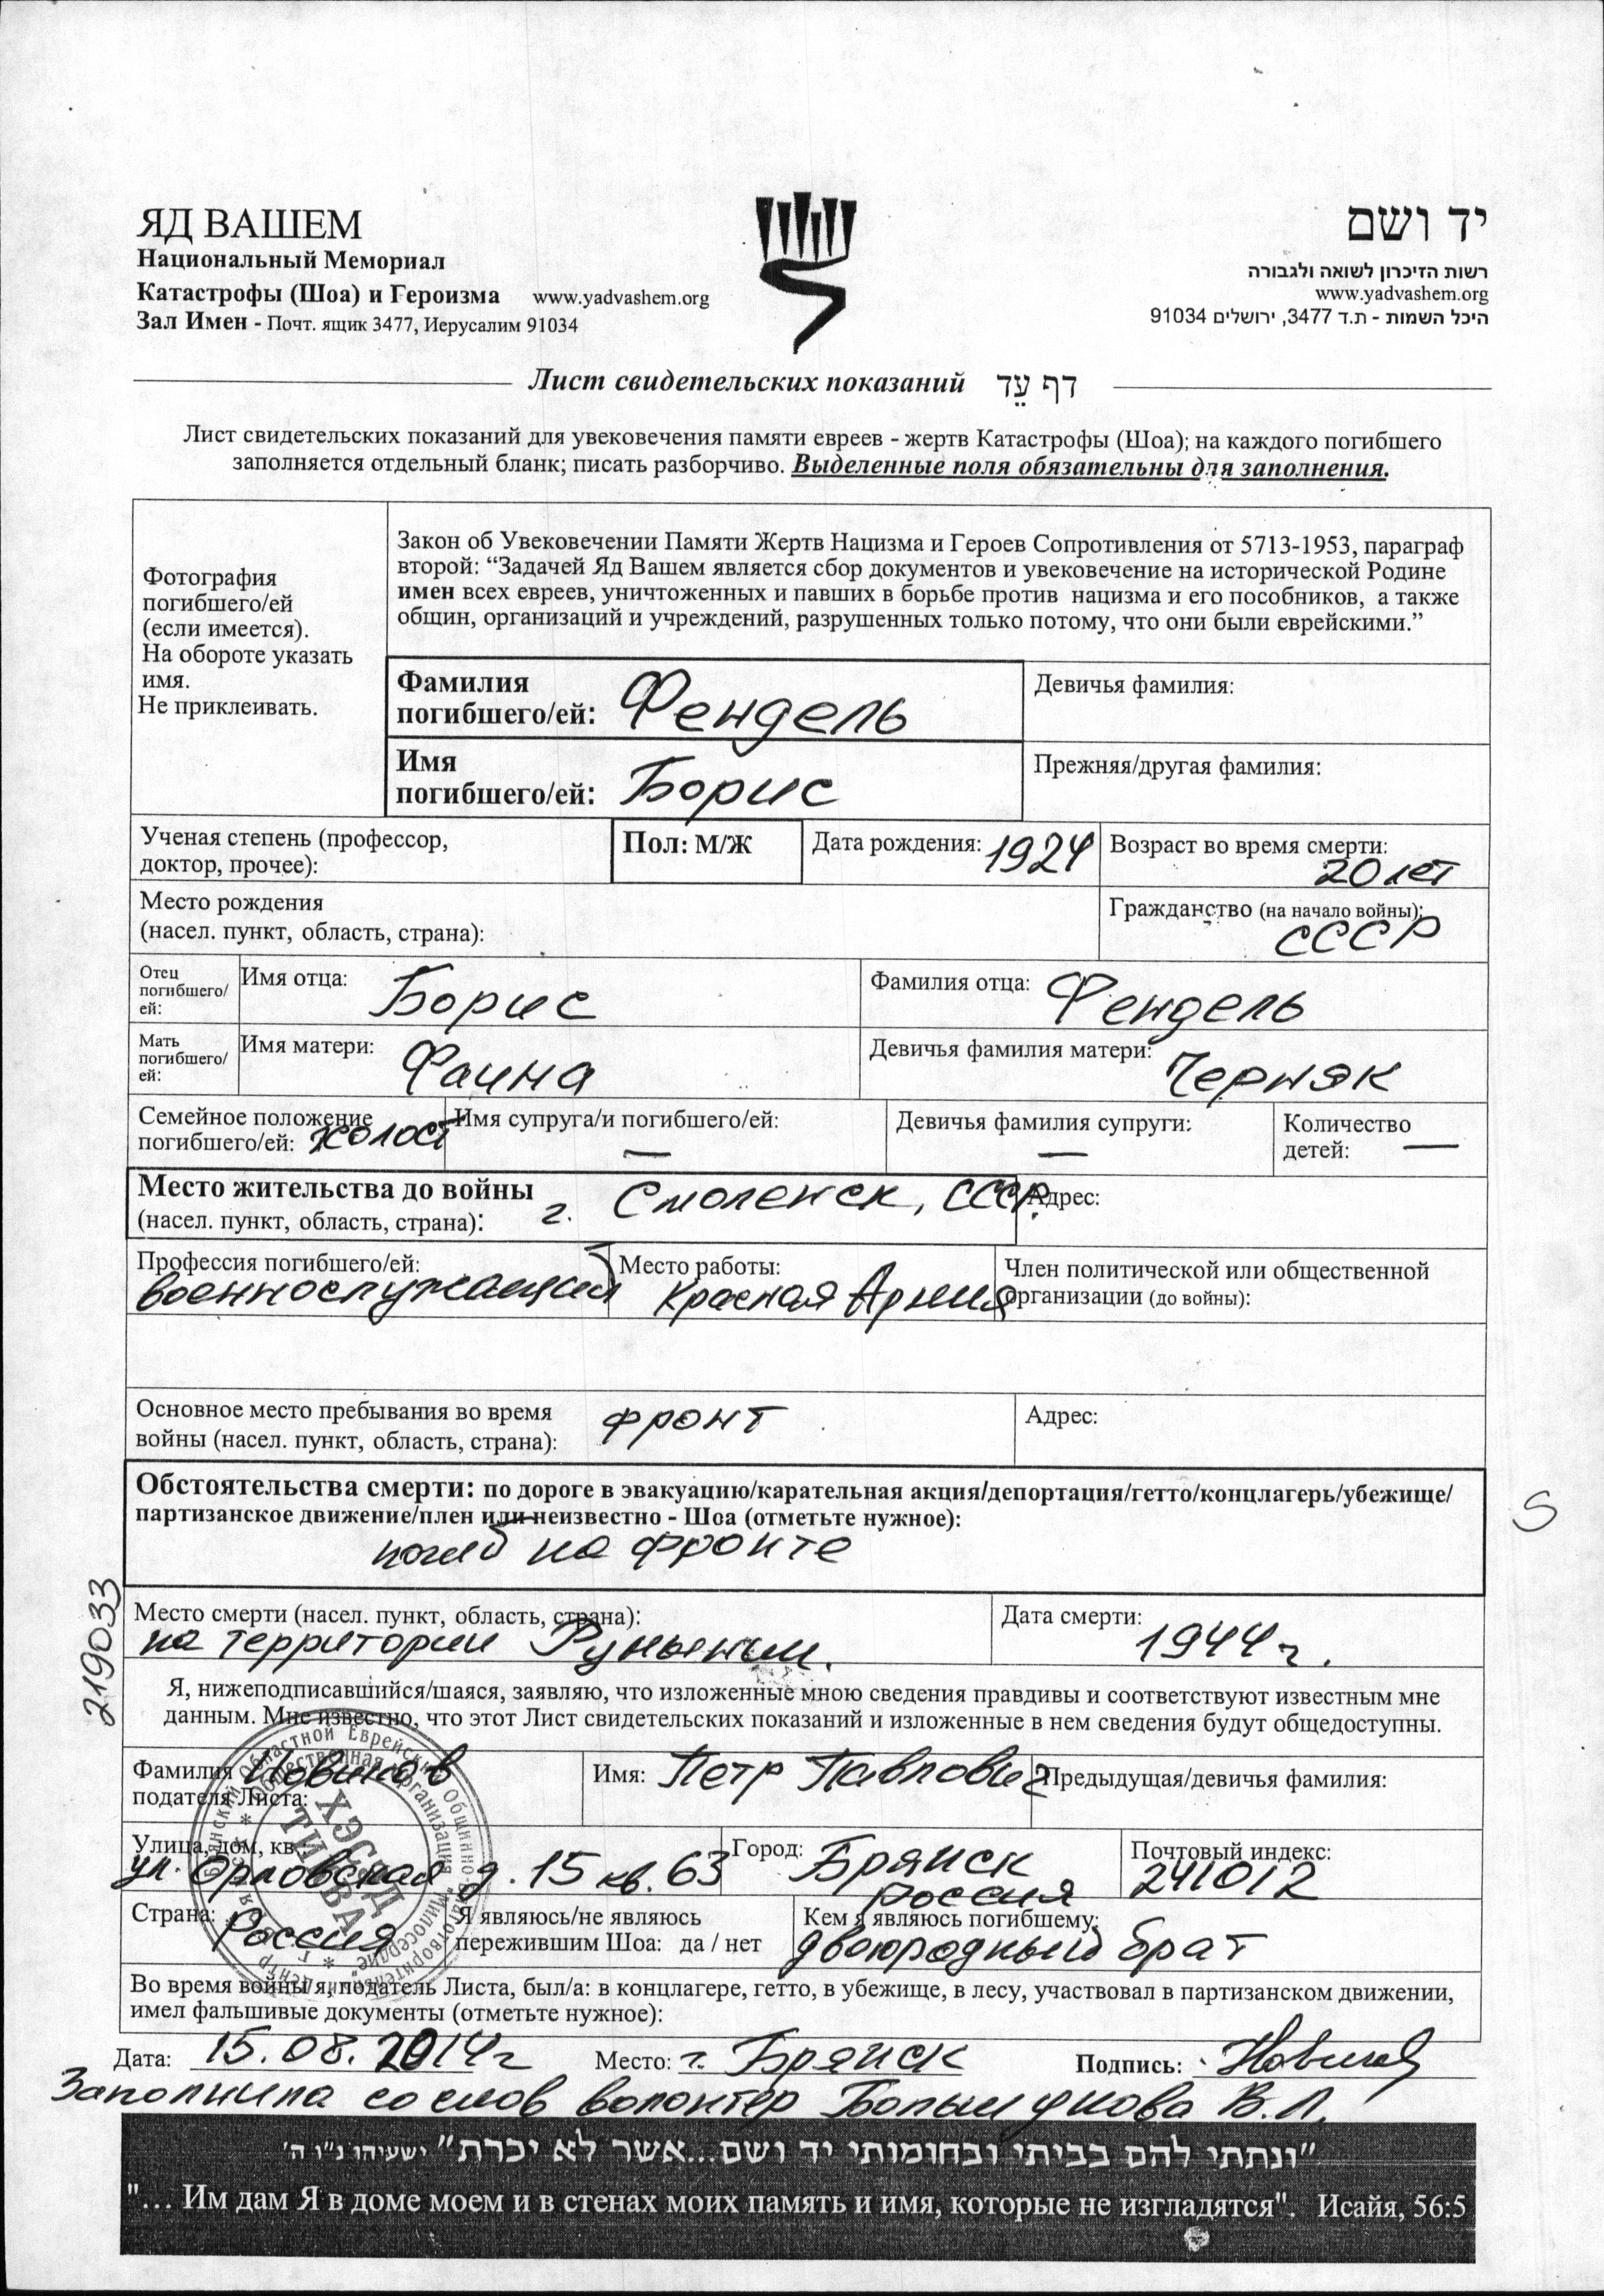 ЯД ВАШЕМ
Национальный Мемориал
Катастрофы (Шоа) и Героизма www.yadvashem.org
Зал Имен - Почт. ящик 3477, Иерусалим 91034
יד ושם
רשות הזיכרון לשואה ולגבורה
www.yadvashem.org
היכל השמות - ת.ד 3477, ירושלים 91034
Лист свидетельских показаний דף עֵד
Лист свидетельских показаний для увековечения памяти евреев - жертв Катастрофы (Шоа); на каждого погибшего
заполняется отдельный бланк; писать разборчиво. Выделенные поля обязательны для заполнения.
Фотография
погибшего/ей
(если имеется).
На обороте указать
имя.
Не приклеивать.
Закон об Увековечении Памяти Жертв Нацизма и Героев Сопротивления от 5713-1953, параграф
второй: “Задачей Яд Вашем является сбор документов и увековечение на исторической Родине
имен всех евреев, уничтоженных и павших в борьбе против нацизма и его пособников, а также
общин, организаций и учреждений, разрушенных только потому, что они были еврейскими.”
Фамилия
погибшего/ей: Фендель
Девичья фамилия:
Имя
погибшего/ей: Борис
Прежняя/другая фамилия:
Ученая степень (профессор,
доктор, прочее):
Пол: М/Ж
Дата рождения: 1924
Возраст во время смерти:
20 лет
Место рождения
(насел. пункт, область, страна):
Гражданство (на начало войны):
СССР
Отец
погибшего/
ей:
Имя отца: Борис
Фамилия отца: Фендель
Мать
погибшего/
ей:
Имя матери: Фаина
Девичья фамилия матери: Черняк
Семейное положение
погибшего/ей: холост
Имя супруга/и погибшего/ей:
—
Девичья фамилия супруги:
—
Количество
детей: —
Место жительства до войны
(насел. пункт, область, страна): г. Смоленск, СССР.
Адрес:
Профессия погибшего/ей:
военнослужащий
Место работы:
Красная Армия
Член политической или общественной
организации (до войны):
Основное место пребывания во время
войны (насел. пункт, область, страна): фронт
Адрес:
Обстоятельства смерти: по дороге в эвакуацию/карательная акция/депортация/гетто/концлагерь/убежище/
партизанское движение/плен или неизвестно - Шоа (отметьте нужное):
погиб на фронте
S
219033
Место смерти (насел. пункт, область, страна):
на территории Румынии.
Дата смерти:
1944 г.
Я, нижеподписавшийся/шаяся, заявляю, что изложенные мною сведения правдивы и соответствуют известным мне
данным. Мне известно, что этот Лист свидетельских показаний и изложенные в нем сведения будут общедоступны.
Фамилия Новиков
подателя Листа:
Имя: Петр Павлович
Предыдущая/девичья фамилия:
Улица, дом, кв.
ул. Орловская д. 15 кв. 63
Город: Брянск
Россия
Почтовый индекс:
241012
Страна: Россия
Я являюсь/не являюсь
пережившим Шоа: да / нет
Кем я являюсь погибшему:
двоюродный брат
ХЭСЭД
ТИКВА
Во время войны я, податель Листа, был/а: в концлагере, гетто, в убежище, в лесу, участвовал в партизанском движении,
имел фальшивые документы (отметьте нужное):
Дата: 15.08.2014 г Место: г. Брянск Подпись: Новиков
Заполнила со слов волонтер В.Л.
"ונתתי להם בביתי ובחומותי יד ושם...אשר לא יכרת" ישעיהו נ"ו ה'
"... Им дам Я в доме моем и в стенах моих память и имя, которые не изгладятся". Исайя, 56:5